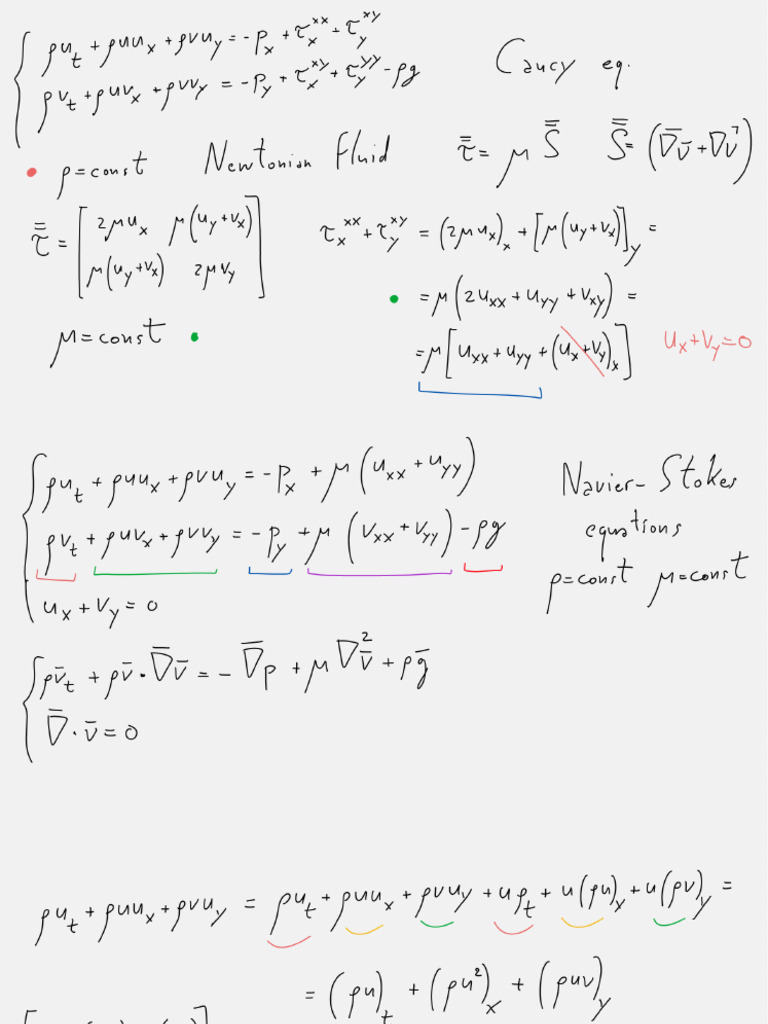 ρu_t + ρuu_x + ρvu_y = -p_x + τ_x^xx + τ_y^xy
ρv_t + ρuv_x + ρvv_y = -p_y + τ_x^xy + τ_y^yy - ρg
Caucy eq.
ρ=const Newtonian Fluid τ̿ = μ S̿ S̿ = (∇̅v̅ + ∇v̅^T)
τ̿ = [2μu_x μ(u_y+v_x)
μ(u_y+v_x) 2μv_y]
τ_x^xx + τ_y^xy = (2μu_x)_x + [μ(u_y+v_x)]_y =
= μ(2u_xx + u_yy + v_xy) =
μ=const
= μ[u_xx + u_yy + (u_x+v_y)_x] u_x+v_y=0
ρu_t + ρuu_x + ρvu_y = -p_x + μ(u_xx + u_yy)
ρv_t + ρuv_x + ρvv_y = -p_y + μ(v_xx + v_yy) - ρg
u_x + v_y = 0
Navier-Stokes
equations
ρ=const μ=const
ρv̅_t + ρv̅·∇̅v̅ = -∇̅p + μ∇²v̅ + ρg̅
∇̅·v̅ = 0
ρu_t + ρuu_x + ρvu_y = ρu_t + ρuu_x + ρvu_y + uρ_t + u(ρu)_x + u(ρv)_y =
= (ρu)_t + (ρu²)_x + (ρuv)_y